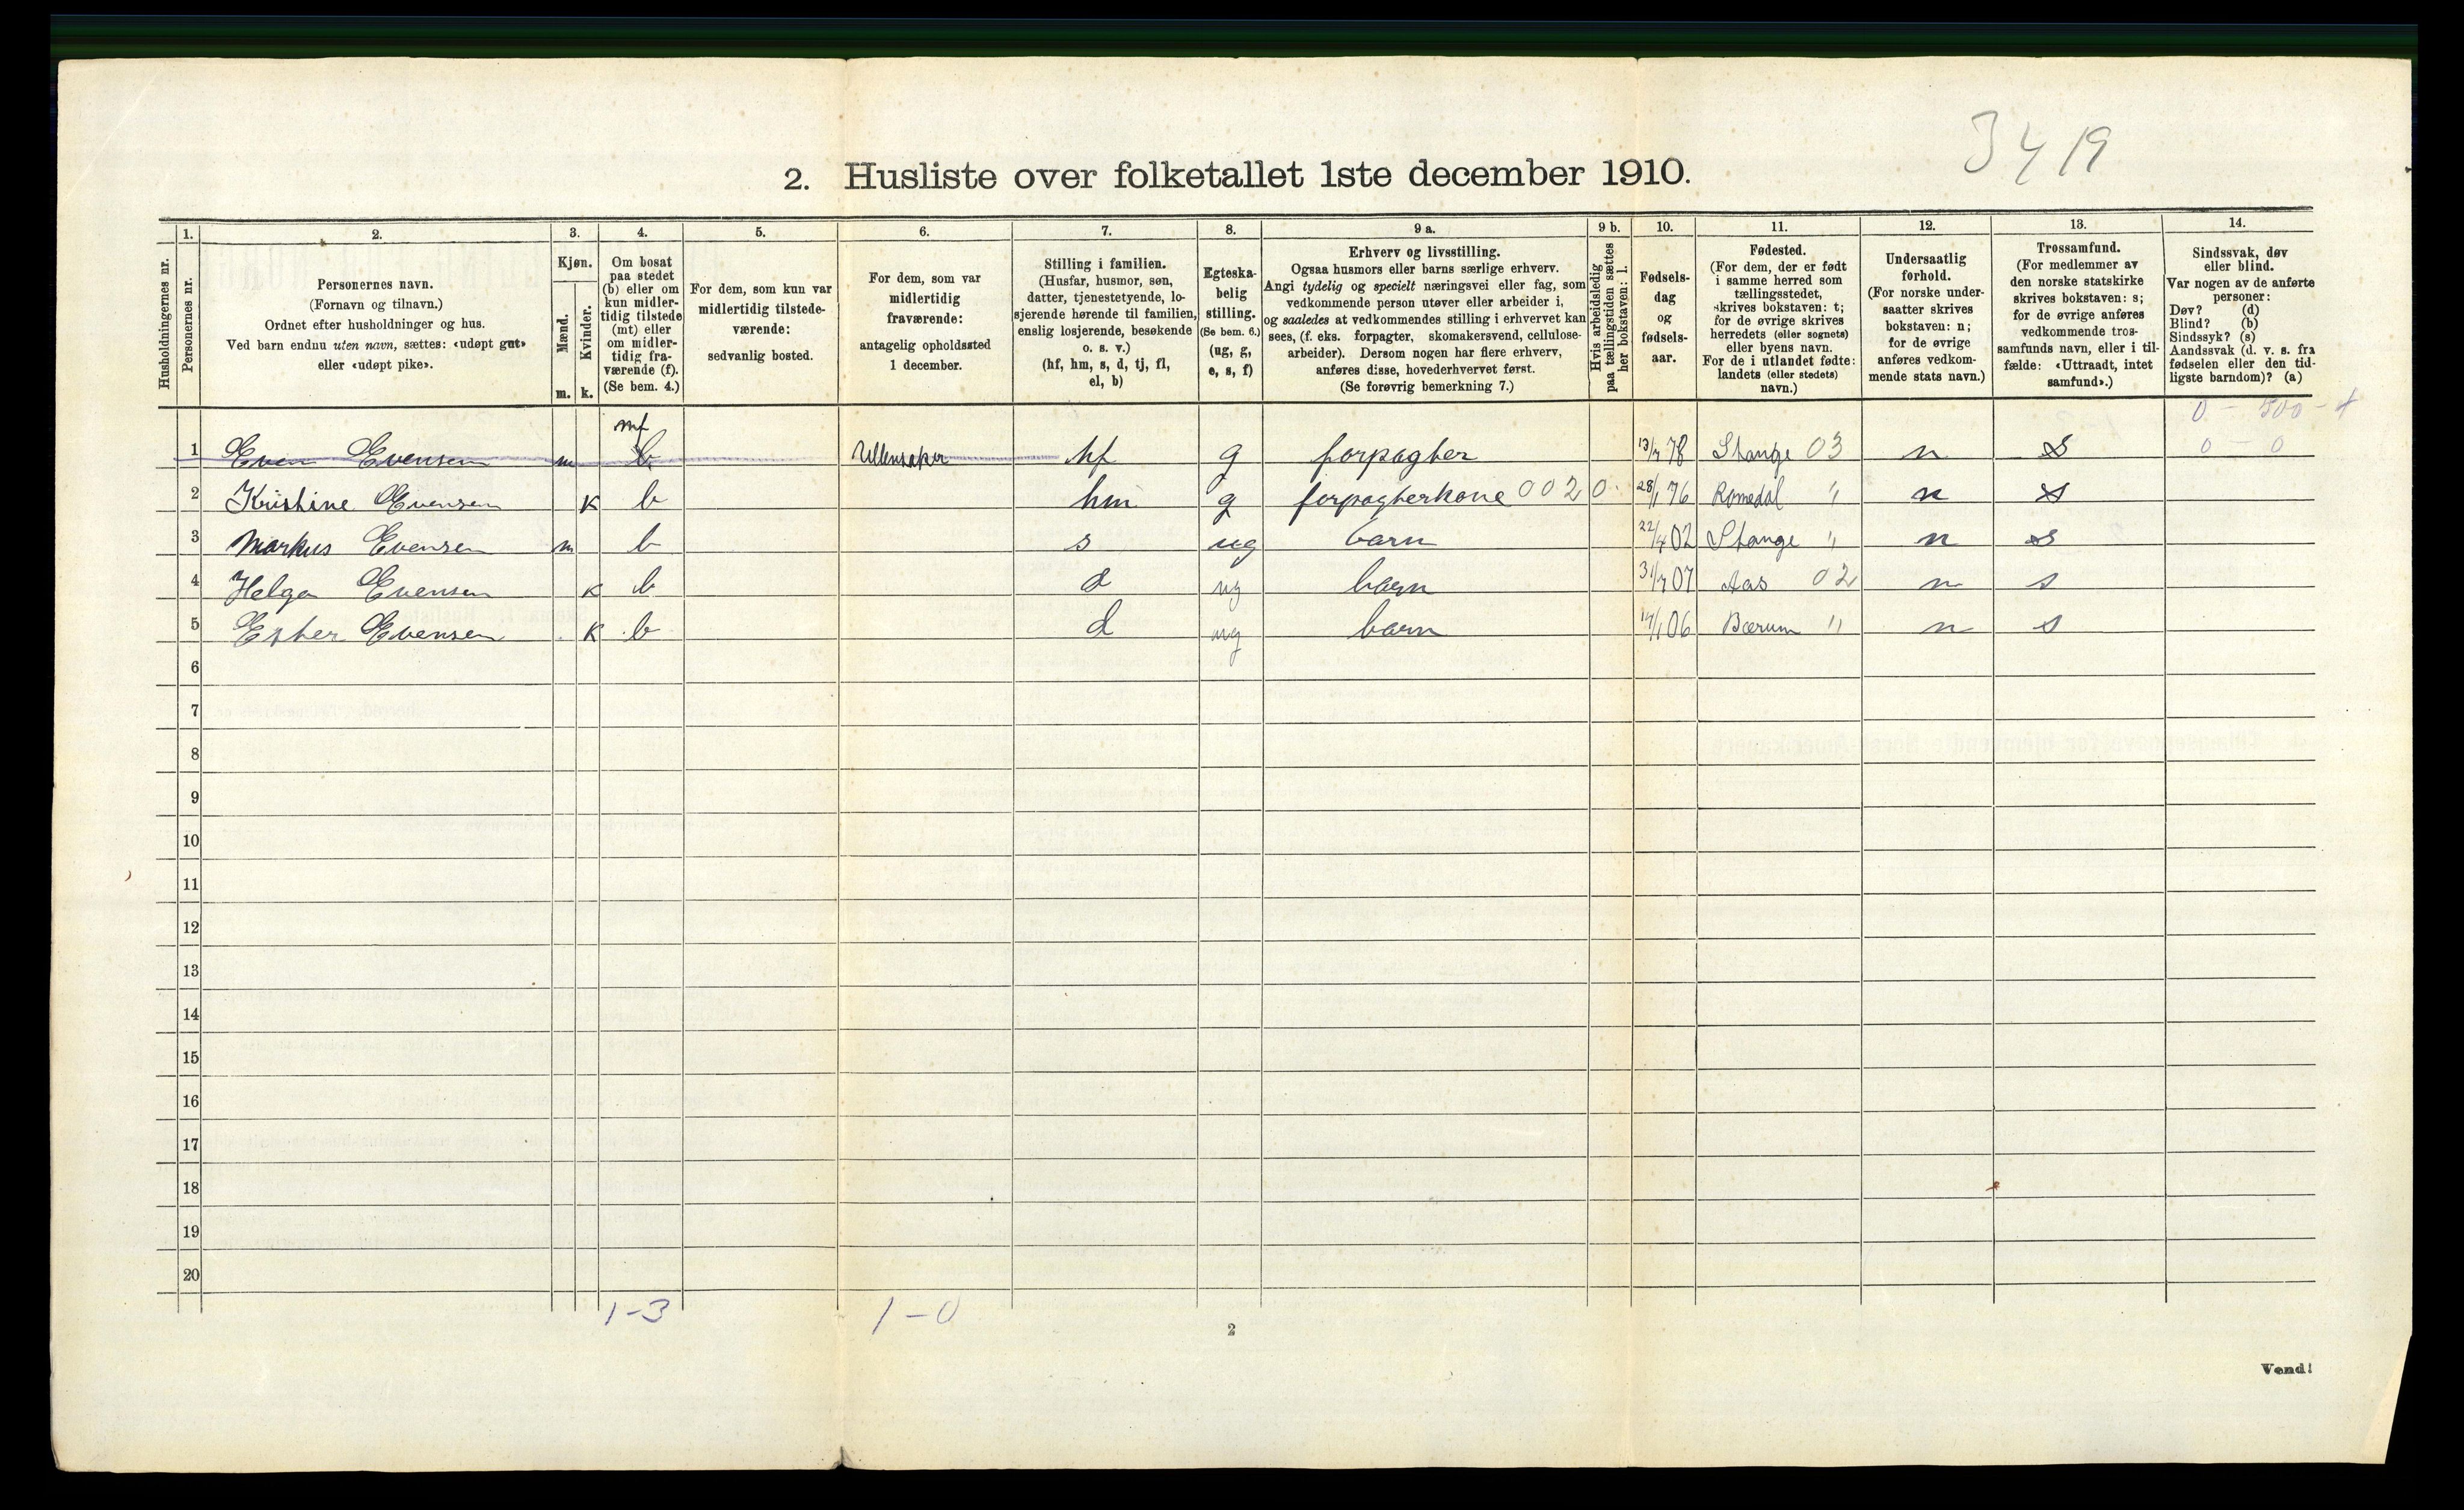 3419
2. Husliste over folketallet 1ste december 1910.
Husholdningernes nr.
1. Personernes nr.
2. Personernes navn.
(Fornavn og tilnavn.)
Ordnet efter husholdninger og hus.
Ved barn endnu uten navn, sættes: «udøpt gut»
eller «udøpt pike».
3. Kjøn.
Mænd. m.
Kvinder. k.
4. Om bosat
paa stedet
(b) eller om
kun midler-
tidig tilstede
(mt) eller
om midler-
tidig fra-
værende (f).
(Se bem. 4.)
5. For dem, som kun var
midlertidig tilstede-
værende:
sedvanlig bosted.
6. For dem, som var
midlertidig
fraværende:
antagelig opholdssted
1 december.
7. Stilling i familien.
(Husfar, husmor, søn,
datter, tjenestetyende, lo-
sjerende hørende til familien,
enslig losjerende, besøkende
o. s. v.)
(hf, hm, s, d, tj, fl,
el, b)
8. Egteska-
belig
stilling.
(Se bem. 6.)
(ug, g,
e, s, f)
9 a. Erhverv og livsstilling.
Ogsaa husmors eller barns særlige erhverv.
Angi tydelig og specielt næringsvei eller fag, som
vedkommende person utøver eller arbeider i,
og saaledes at vedkommendes stilling i erhvervet kan
sees, (f. eks. forpagter, skomakersvend, cellulose-
arbeider). Dersom nogen har flere erhverv,
anføres disse, hovederhvervet først.
(Se forøvrig bemerkning 7.)
9 b. Hvis arbeidsledig
paa tællingstiden sættes
her bokstaven: l.
10. Fødsels-
dag
og
fødsels-
aar.
11. Fødested.
(For dem, der er født
i samme herred som
tællingsstedet,
skrives bokstaven: t;
for de øvrige skrives
herredets (eller sognets)
eller byens navn.
For de i utlandet fødte:
landets (eller stedets)
navn.)
12. Undersaatlig
forhold.
(For norske under-
saatter skrives
bokstaven: n;
for de øvrige
anføres vedkom-
mende stats navn.)
13. Trossamfund.
(For medlemmer av
den norske statskirke
skrives bokstaven: s;
for de øvrige anføres
vedkommende tros-
samfunds navn, eller i til-
fælde: «Uttraadt, intet
samfund».)
14. Sindssvak, døv
eller blind.
Var nogen av de anførte
personer:
Døv? (d)
Blind? (b)
Sindssyk? (s)
Aandssvak (d. v. s. fra
fødselen eller den tid-
ligste barndom)? (a)
mf 0 - 500 -
1 Even Evensen m b Ullensaker hf g forpagter 78 Stange 03 n s 0 0
2 Kristine Evensen k b hm g forpagterkone 002 0 28/1 76 Romedal " n s
3 Markus Evensen m b s ug barn 22/4 02 Stange " n s
4 Helga Evensen k b d ug barn 31/7 07 Aas 02 n s
5 Esther Evensen k b d ug barn 06 Bærum " n s
6
7
8
9
10
11
12
13
14
15
16
17
18
19
20
1-3 1-0
2
Vend!